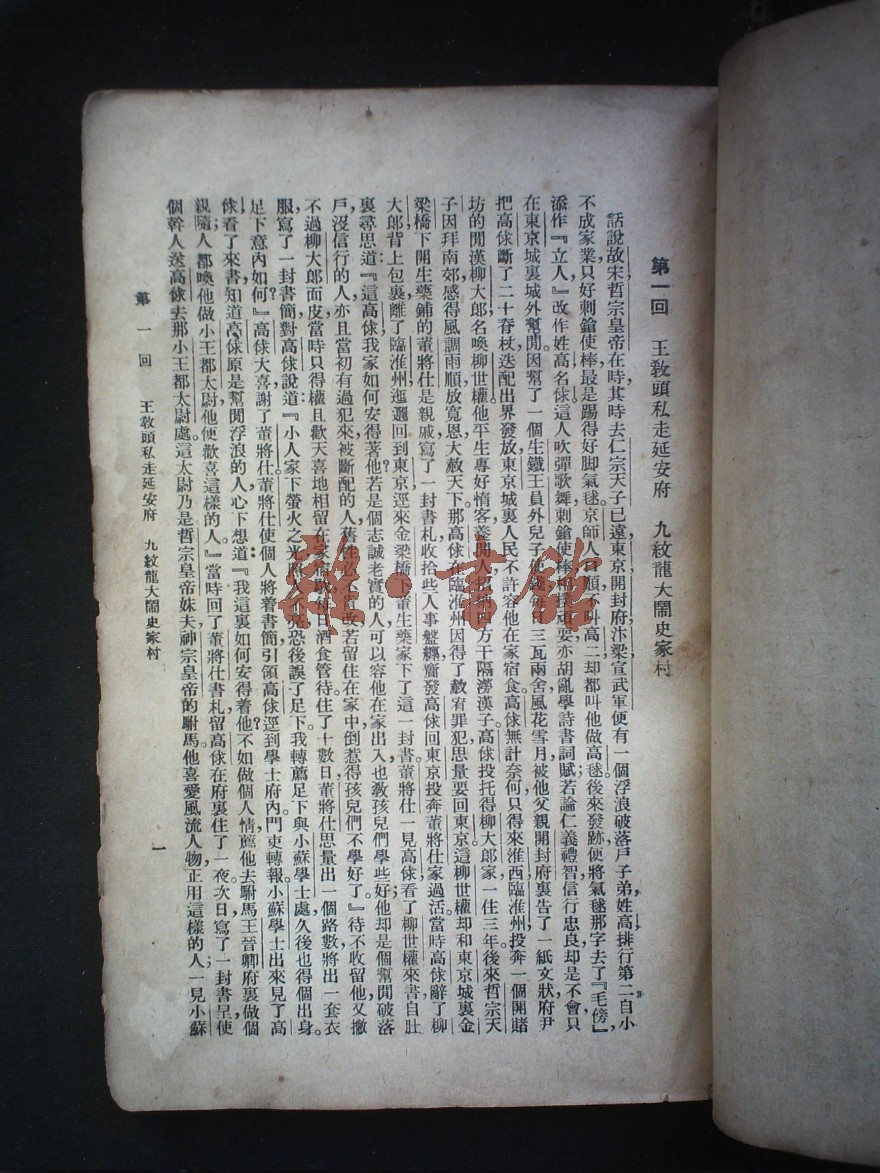 第一回 王敎頭私走延安府 九紋龍大鬧史家村
話說故宋哲宗皇帝在時其時去仁宗天子已遠，東京開封府汴梁宣武軍便有一個浮浪破落戶子弟姓高排行第二自小
不成家業只好刺鎗使棒最是踢得好脚氣毬。京師人口順不叫高二却都叫他做高毬；後來發跡便將氣毬那字去了『毛傍』，
添作『立人』改作姓高名俅。這人吹彈歌舞刺鎗使棒相撲頑耍亦胡亂學詩書詞賦；若論仁義禮智信行忠良却是不會，只
在東京城裏城外幫閒。因幫了一個生鐵王員外兒子使錢每日三瓦兩舍風花雪月，被他父親開封府裏告了一紙文狀府尹
把高俅斷了二十脊杖迭配出界發放東京城裏人民不許容他在家宿食。高俅無計奈何，只得來淮西臨淮州投奔一個開賭
坊的閒漢柳大郎名喚柳世權。他平生專好惜客養閒人招納四方干隔澇漢子。高俅投托得柳大郎家一住三年。後來哲宗天
子因拜南郊，感得風調雨順放寬恩大赦天下。那高俅在臨淮州因得了赦宥罪犯思量要回東京。這柳世權却和東京城裏金
梁橋下開生藥鋪的董將仕是親戚寫了一封書札收拾些人事盤纏齎發高俅回東京投奔董將仕家過活。當時高俅辭了柳
大郎背上包裹離了臨淮州迤邐回到東京逕來金梁橋下董生藥家下了這一封書。董將仕一見高俅看了柳世權來書自肚
裏尋思道：『這高俅我家如何安得著他？若是個志誠老實的人可以容他在家出入也敎孩兒們學些好；他却是個幫閒破落
戶沒信行的人，亦且當初有過犯來，被斷配的人，舊性必不肯改，若留住在家中倒惹得孩兒們不學好了。』待不收留他又撇
不過柳大郎面皮當時只得權且歡天喜地相留在家宿歇每日酒食管待住了十數日董將仕思量出一個路數將出一套衣
服，寫了一封書簡對高俅說道：『小人家下螢火之光照人不亮恐後誤了足下。我轉薦足下與小蘇學士處久後也得個出身。
足下意內如何？』高俅大喜謝了董將仕。董將仕使個人將着書簡引領高俅逕到學士府內。門吏轉報，小蘇學士出來見了高
俅，看了來書，知道高俅原是幫閒浮浪的人，心下想道：『我這裏如何安得着他？不如做個人情薦他去駙馬王晉卿府裏做個
親隨；人都喚他做小王都太尉他便歡喜這樣的人』當時回了董將仕書札留高俅在府裏住了一夜。次日寫了一封書呈使
個幹人送高俅去那小王都太尉處。這太尉乃是哲宗皇帝妹夫神宗皇帝的駙馬。他喜愛風流人物，正用這樣的人；一見小蘇
第一回 王敎頭私走延安府 九紋龍大鬧史家村 一
雅·書館